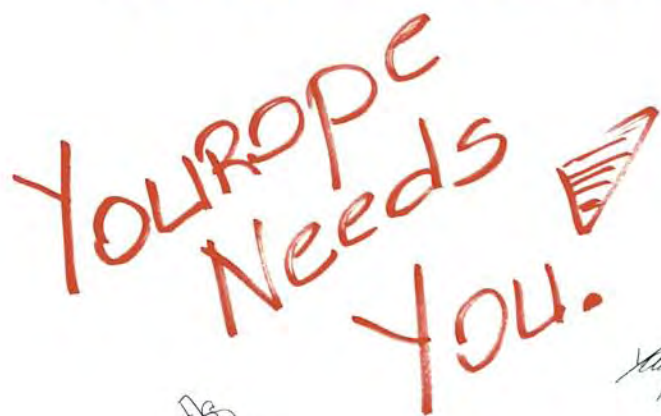 YouRope
Needs
You.